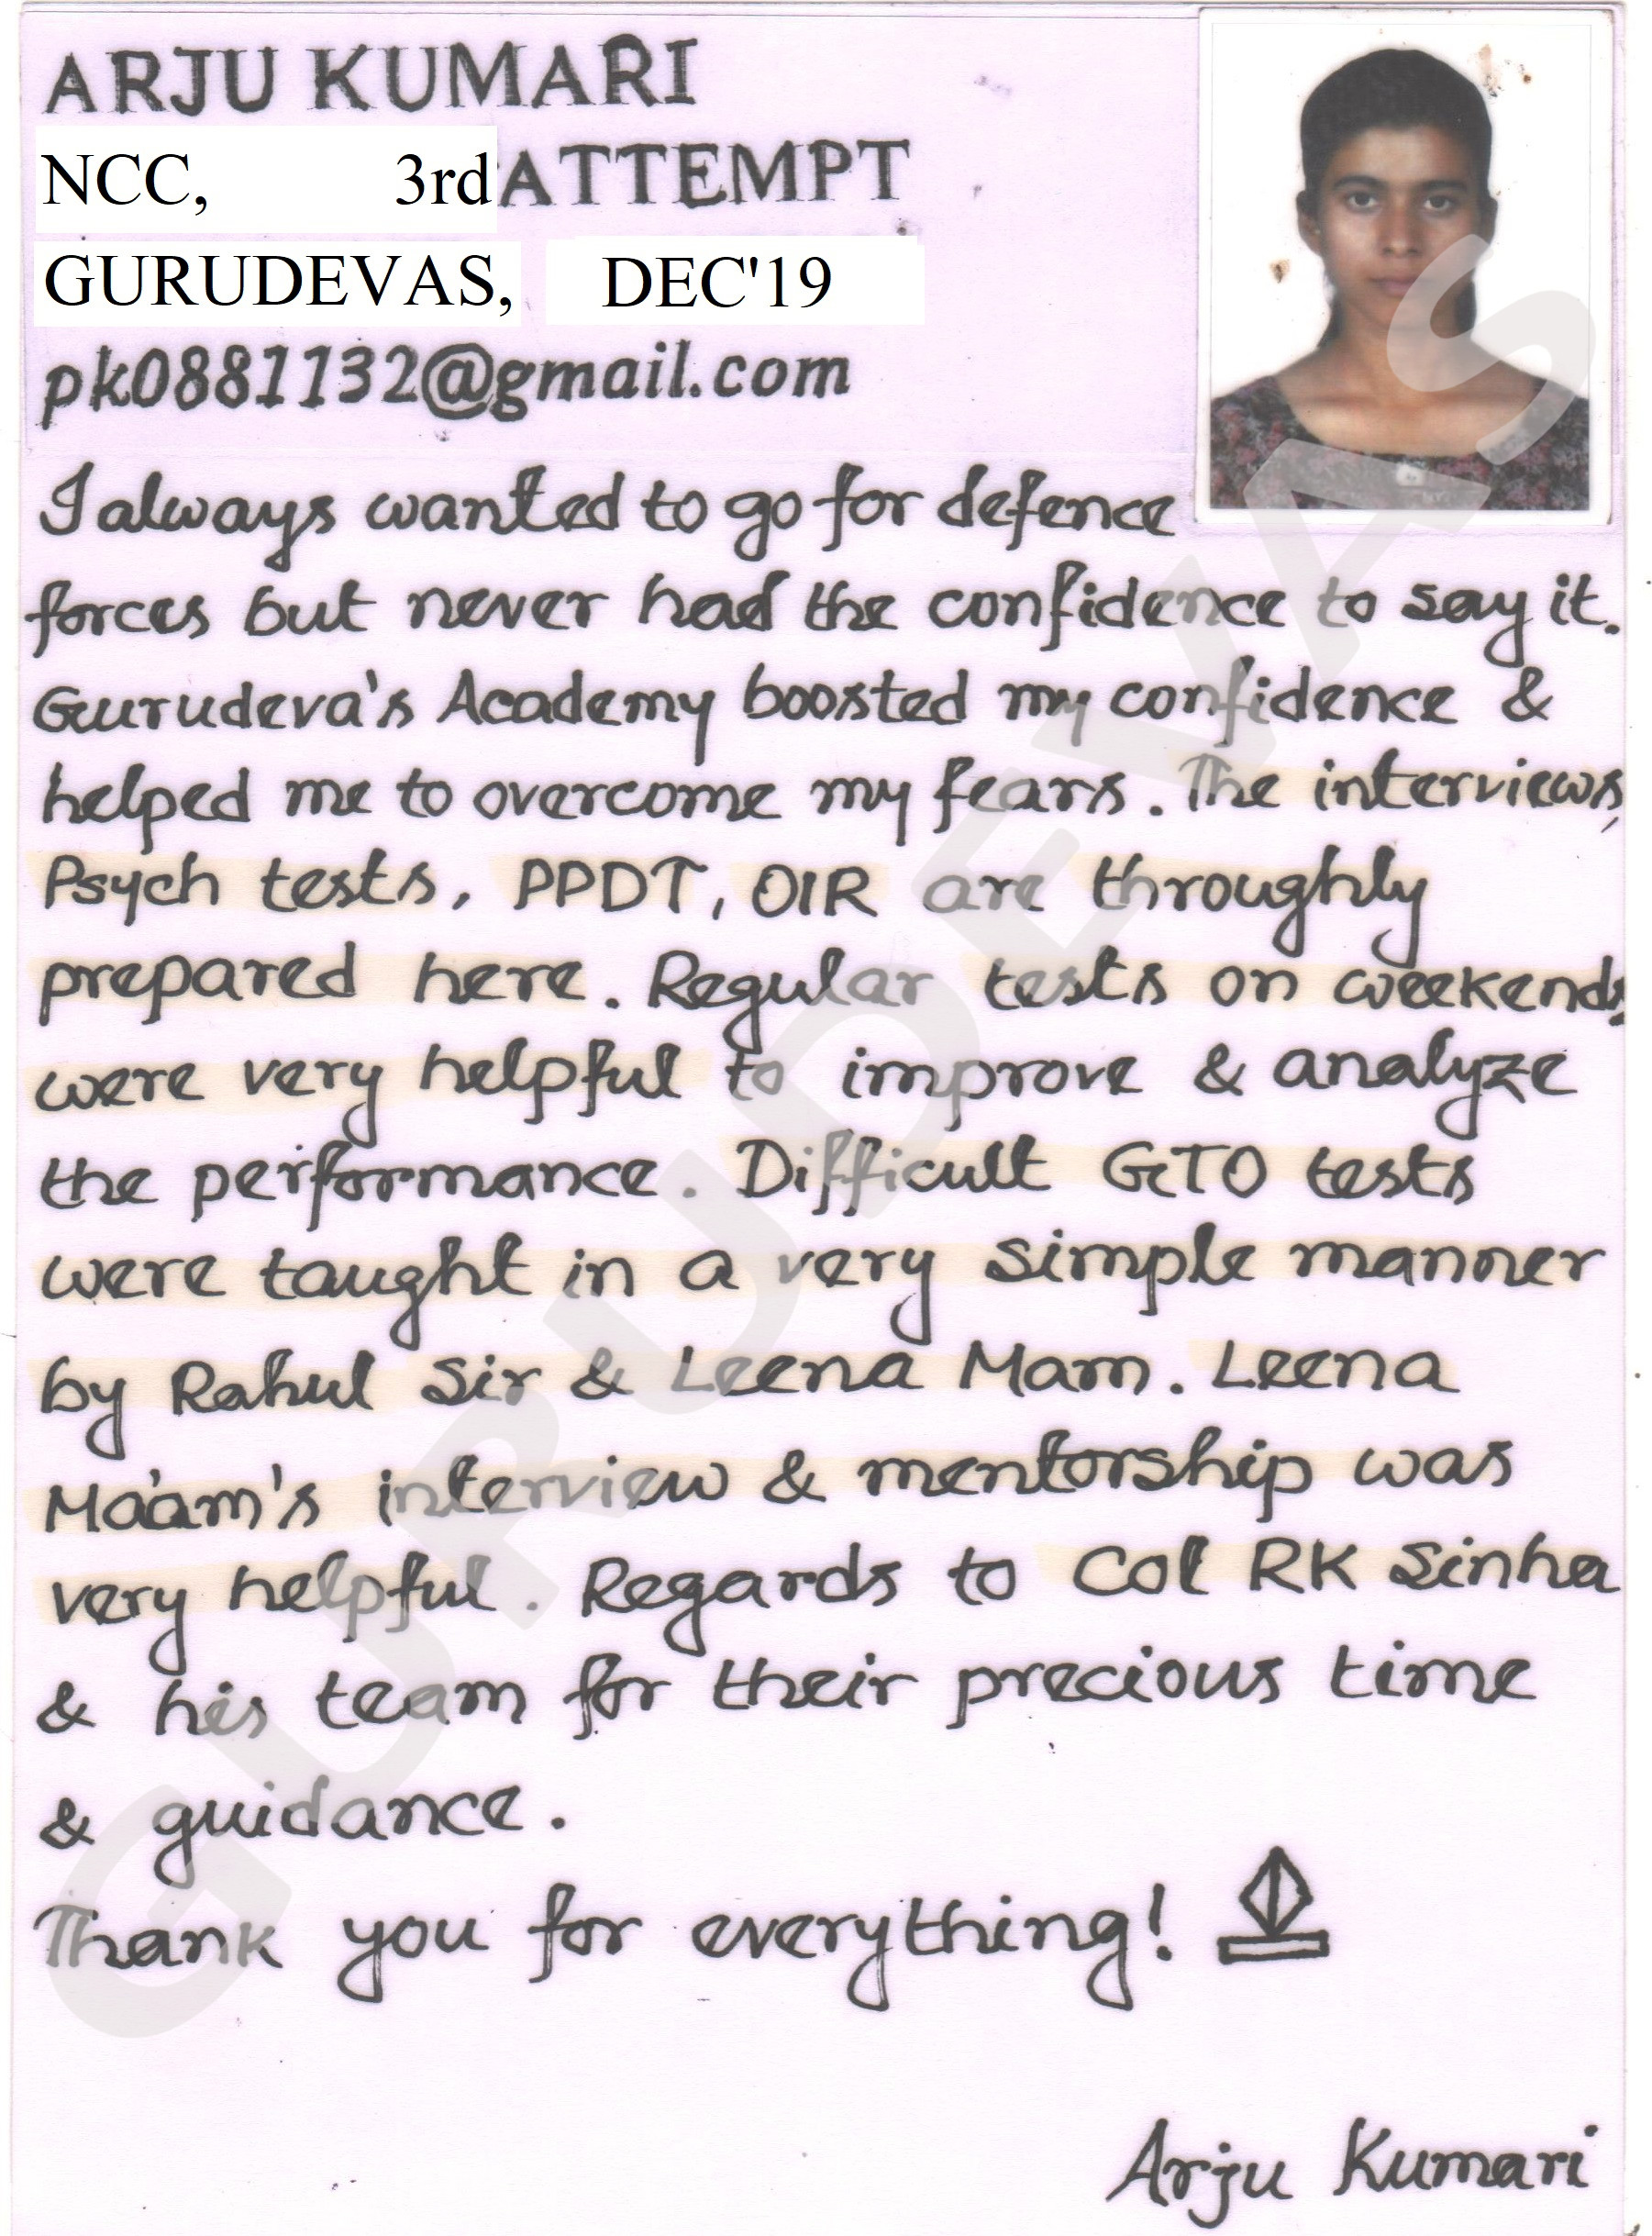 ARJU KUMARI
NCC, 3rd ATTEMPT
GURUDEVAS, DEC'19
pk0881132@gmail.com
I always wanted to go for defence
forces but never had the confidence to say it.
Gurudeva's Academy boosted my confidence &
helped me to overcome my fears. The interviews,
Psych tests, PPDT, OIR are throughly
prepared here. Regular tests on weekends,
were very helpful to improve & analyze
the performance. Difficult GTO tests
were taught in a very simple manner
by Rahul Sir & Leena Mam. Leena
Ma'am's interview & mentorship was
very helpful. Regards to Col RK Sinha
& his team for their precious time
& guidance.
Thank you for everything!
Arju Kumari
GURUDEVAS